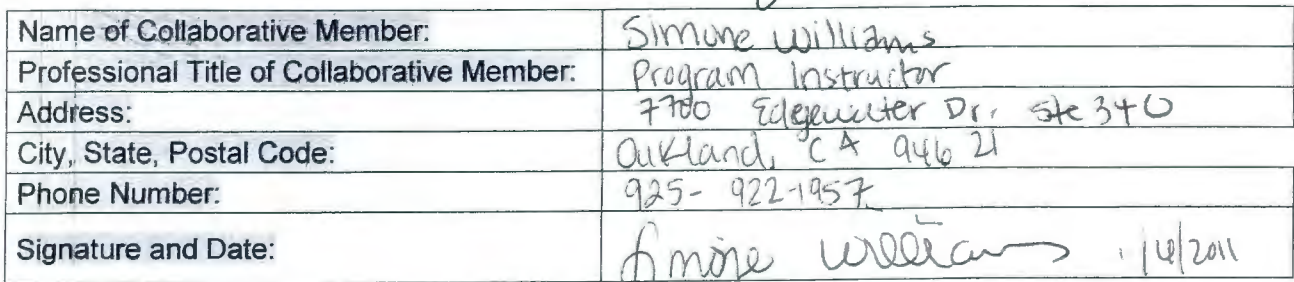 Name of Collaborative Member: Simone Williams
Professional Title of Collaborative Member: Program Instructor
Address: 7700 Edgewater Dr. Ste 340
City, State, Postal Code: Oakland, CA 94621
Phone Number: 925-922-1957
Signature and Date: Simone Williams 1/6/2011